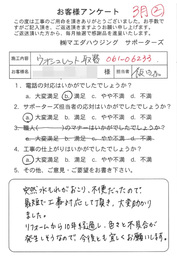 3月②
お客様アンケート
この度は工事のご依頼を頂きありがとうございました。お手数です
がご記入頂き、ご返送頂きますようお願い申し上げます。
ご返送頂いた方から、毎月抽選で感謝品を進呈いたします。
㈱マエダハウジング サポーターズ
施工内容 ウォシュレット取替
お名前
担当者
1. 電話の対応はいかがでしたでしょうか？
a. 大変満足 b. 満足 c. やや不満 d. 不満
2. サポーターズ担当者の応対はいかがでしたでしょうか？
a. 大変満足 b. 満足 c. やや不満 d. 不満
3. 職人( )のマナーはいかがでしたでしょうか？
a. 大変満足 b. 満足 c. やや不満 d. 不満
4. 工事の仕上がりはいかがでしたでしょうか？
a. 大変満足 b. 満足 c. やや不満 d. 不満
その他、ご意見・ご要望をお書き下さい。
突然水もれがおこり、不便だったので
最短で工事対応して頂き、大変助かり
ました。
リフォームから10年経過し、色々と不具合が
発生しそうなので今後とも宜しくお願いします。